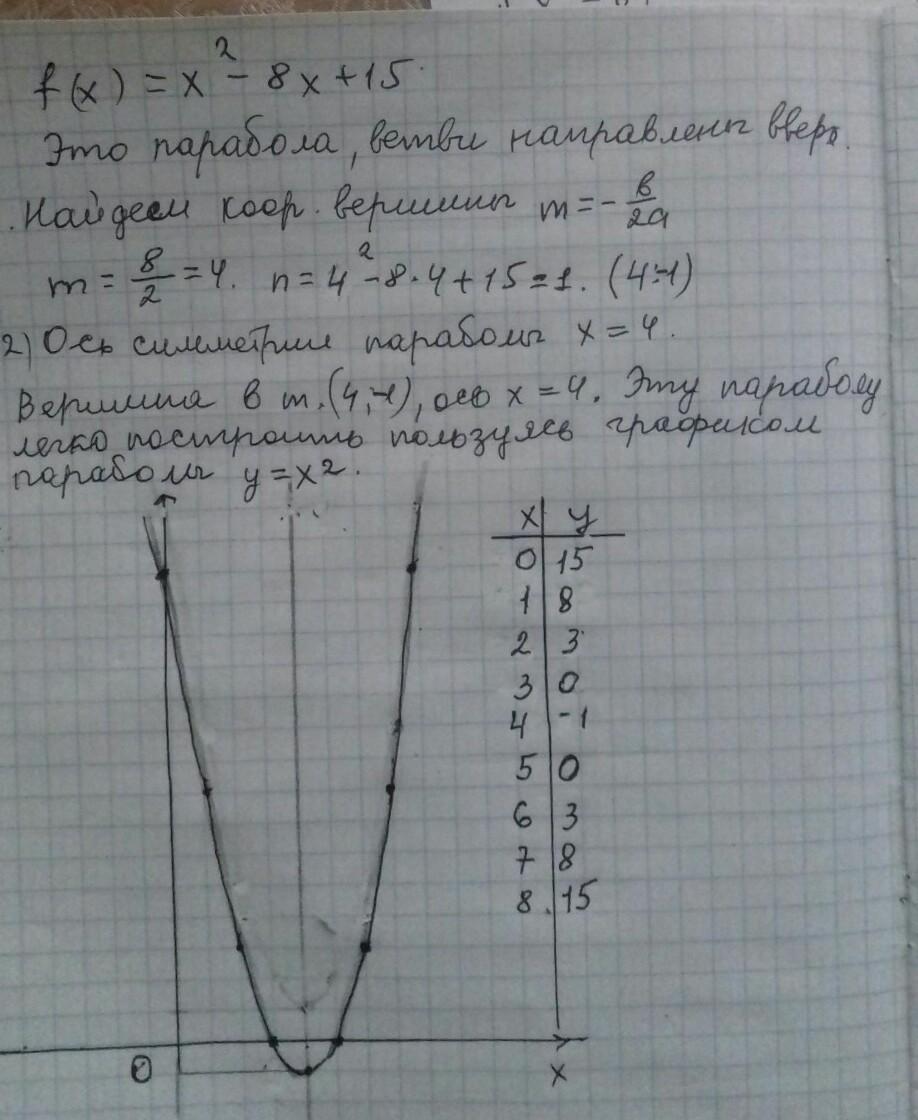 f(x) = x² - 8x + 15
Это парабола, ветви направлены вверх.
Найдем коор. вершины m = - в/2а
m = 8/2 = 4. n = 4² - 8·4 + 15 = 1. (4;-1)
2) Ось симметрии параболы x = 4.
Вершина в т. (4;-1), ось x = 4. Эту параболу
легко построить пользуясь графиком
параболы y = x².
x | y
0 | 15
1 | 8
2 | 3
3 | 0
4 | -1
5 | 0
6 | 3
7 | 8
8 | 15
0
x